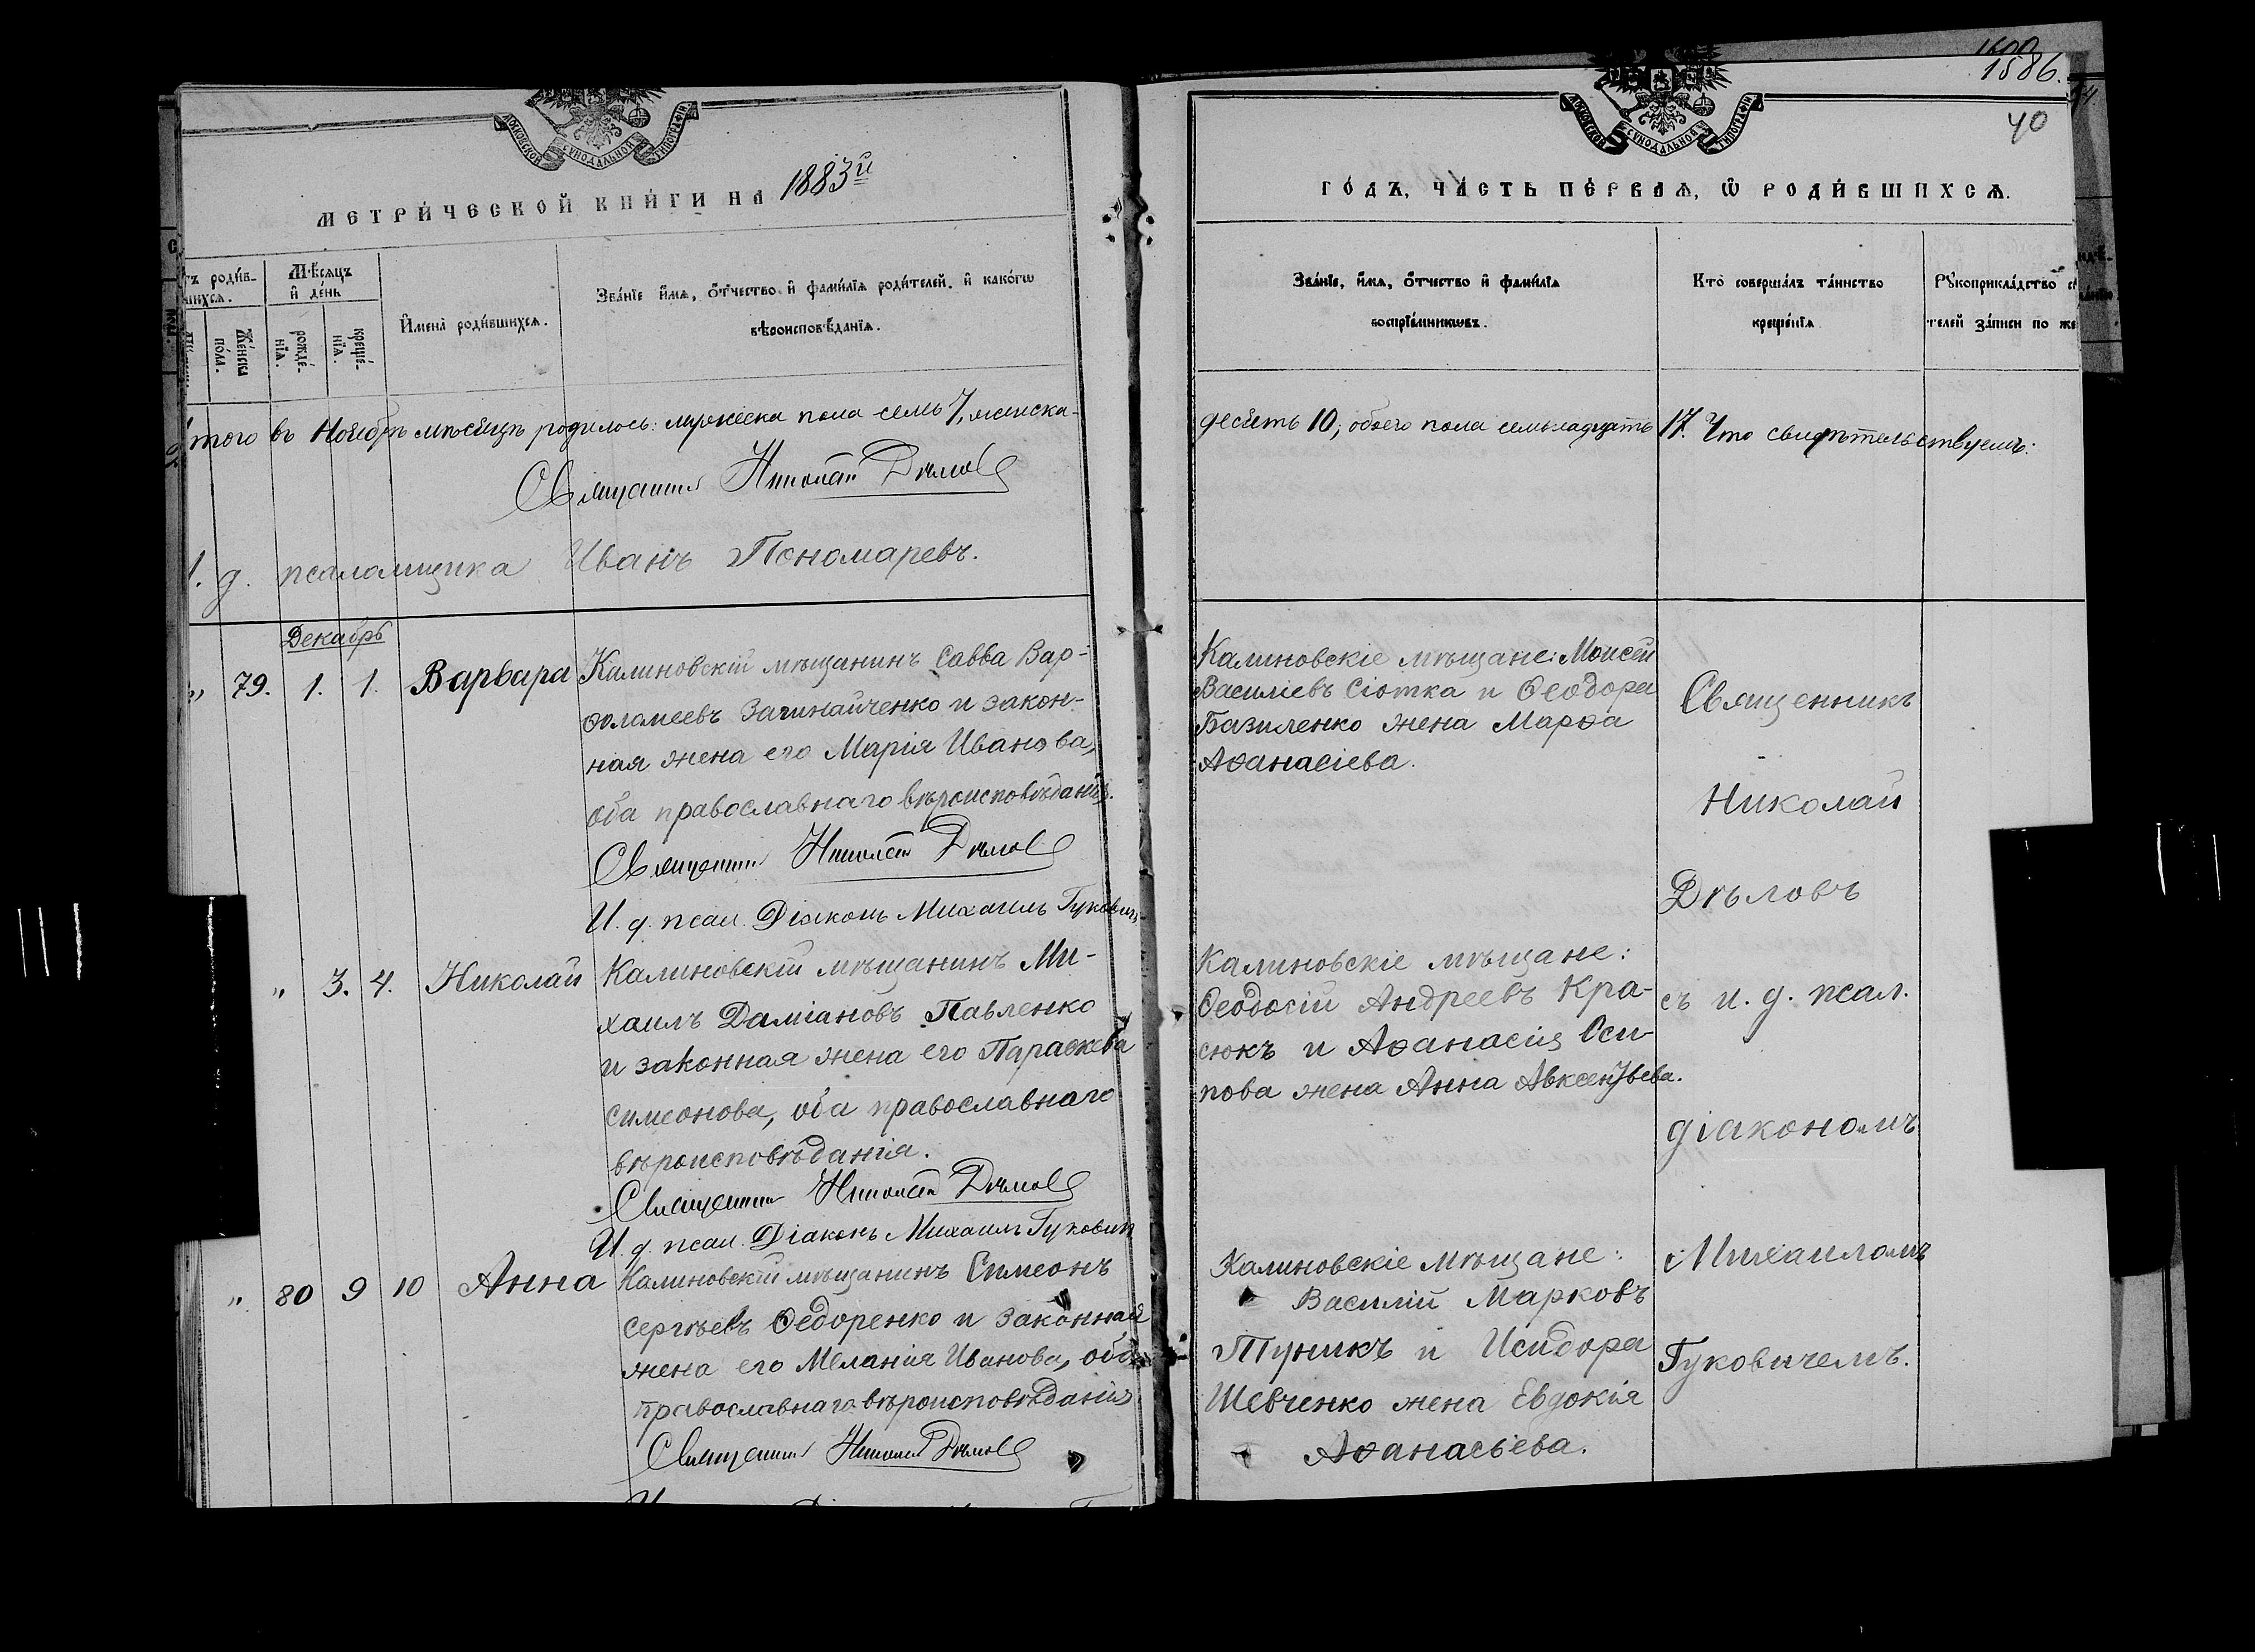 1600
1886.
40
МОСКОВСКОЙ СѴНОДАЛЬНОЙ ТИПОГРАФІИ
МОСКОВСКОЙ СѴНОДАЛЬНОЙ ТИПОГРАФІИ
МЕТРИ́ЧЕСКОЙ КНИ́ГИ НА 1883й
ГО́ДЪ, ЧА́СТЬ ПЕ́РВАѦ, Ѡ҆ РОДИ́ВШИХСѦ.
тъ роди́в-
шихсѧ.
Же́нска
по́ла.
Мѣ́сѧцъ
и҆ де́нь
рожде́-
нїѧ.
креще́-
нїѧ.
И҆мена̀ роди́вшихсѧ.
Зва́нїе и҆́мѧ, ѻ҆́тчество и҆ фами́лїѧ роди́телей, и҆ како́гѡ
вѣроисповѣ́данїѧ.
Зва́нїе, и҆́мѧ, ѻ҆́тчество и҆ фами́лїѧ
воспрїе́мникѡвъ.
Кто̀ соверша́лъ та́инство
креще́нїѧ
Рꙋкоприкла́дство св
телей за́писи по же
того въ Ноябрѣ мѣсяцѣ родилось: мужеска пола семь 7, женска-
десять 10; обоего пола семьнадцать 17. Что свидѣтельствуемъ:
Священникъ Николай Дѣловъ
И. д. псаломщика Иванъ Пономаревъ.
Декабрь
" 79. 1. 1. Варвара
Калиновскій мѣщанинъ Савва Вар-
ѳоломеевъ Загинайченко и закон-
ная жена его Марія Иванова,
оба православнаго вѣроисповѣданія.
Священникъ Николай Дѣловъ
И. д. псал. Діаконъ Михаилъ Гуковичъ
Калиновскіе мѣщане: Моисей
Василіевъ Сіотка и Ѳеодора
Базиленко жена Марѳа
Аѳанасіева.
Священникъ
Николай
Дѣловъ
" 3. 4. Николай
Калиновскій мѣщанинъ Ми-
хаилъ Даміановъ Павленко
и законная жена его Параскева
Симеонова, оба православнаго
вѣроисповѣданія.
Священникъ Николай Дѣловъ
И. д. псал. Діаконъ Михаилъ Гуковичъ
Калиновскіе мѣщане:
Ѳеодосій Андреевъ Кра-
сюкъ и Аѳанасія Оси-
пова жена Анна Авксентьева.
съ и. д. псал.
діакономъ
" 80 9 10 Анна
Калиновскій мѣщанинъ Симеонъ
Сергѣевъ Ѳедоренко и законная
жена его Меланія Иванова, оба
православнаго вѣроисповѣданія
Священникъ Николай Дѣловъ
Калиновскіе мѣщане:
Василій Марковъ
Туникъ и Исидора
Шевченко жена Евдокія
Аѳанасьева.
Михаиломъ
Гуковичемъ.